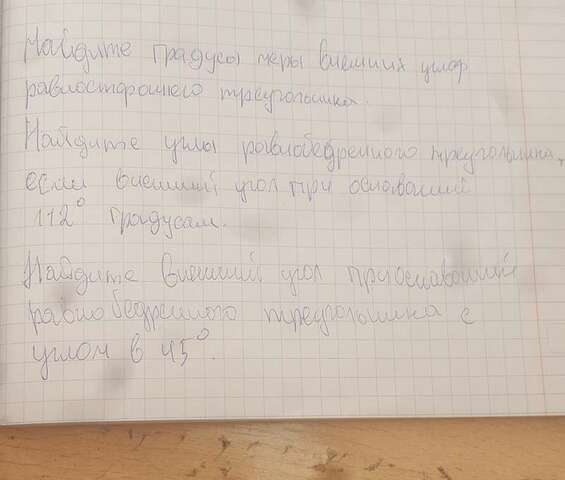 Найдите градусы меры внешних углов
равностороннего треугольника.
Найдите углы равнобедренного треугольника,
если внешний угол при основании
112° градусам.
Найдите внешний угол при основании
равнобедренного треугольника с
углом в 45°.